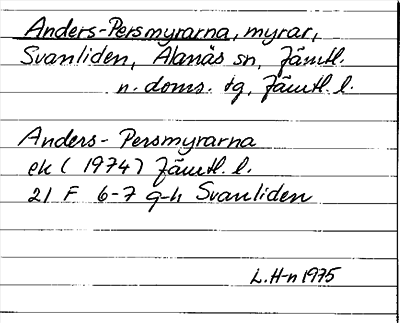 Anders-Persmyrarna, myrar,
Svanliden, Alanäs sn, Jämtl.
n. doms. tg, Jämtl. l.
Anders-Persmyrarna
ek (1974) Jämtl. l.
21 F 6-7 g-h Svanliden
L. H-n 1975